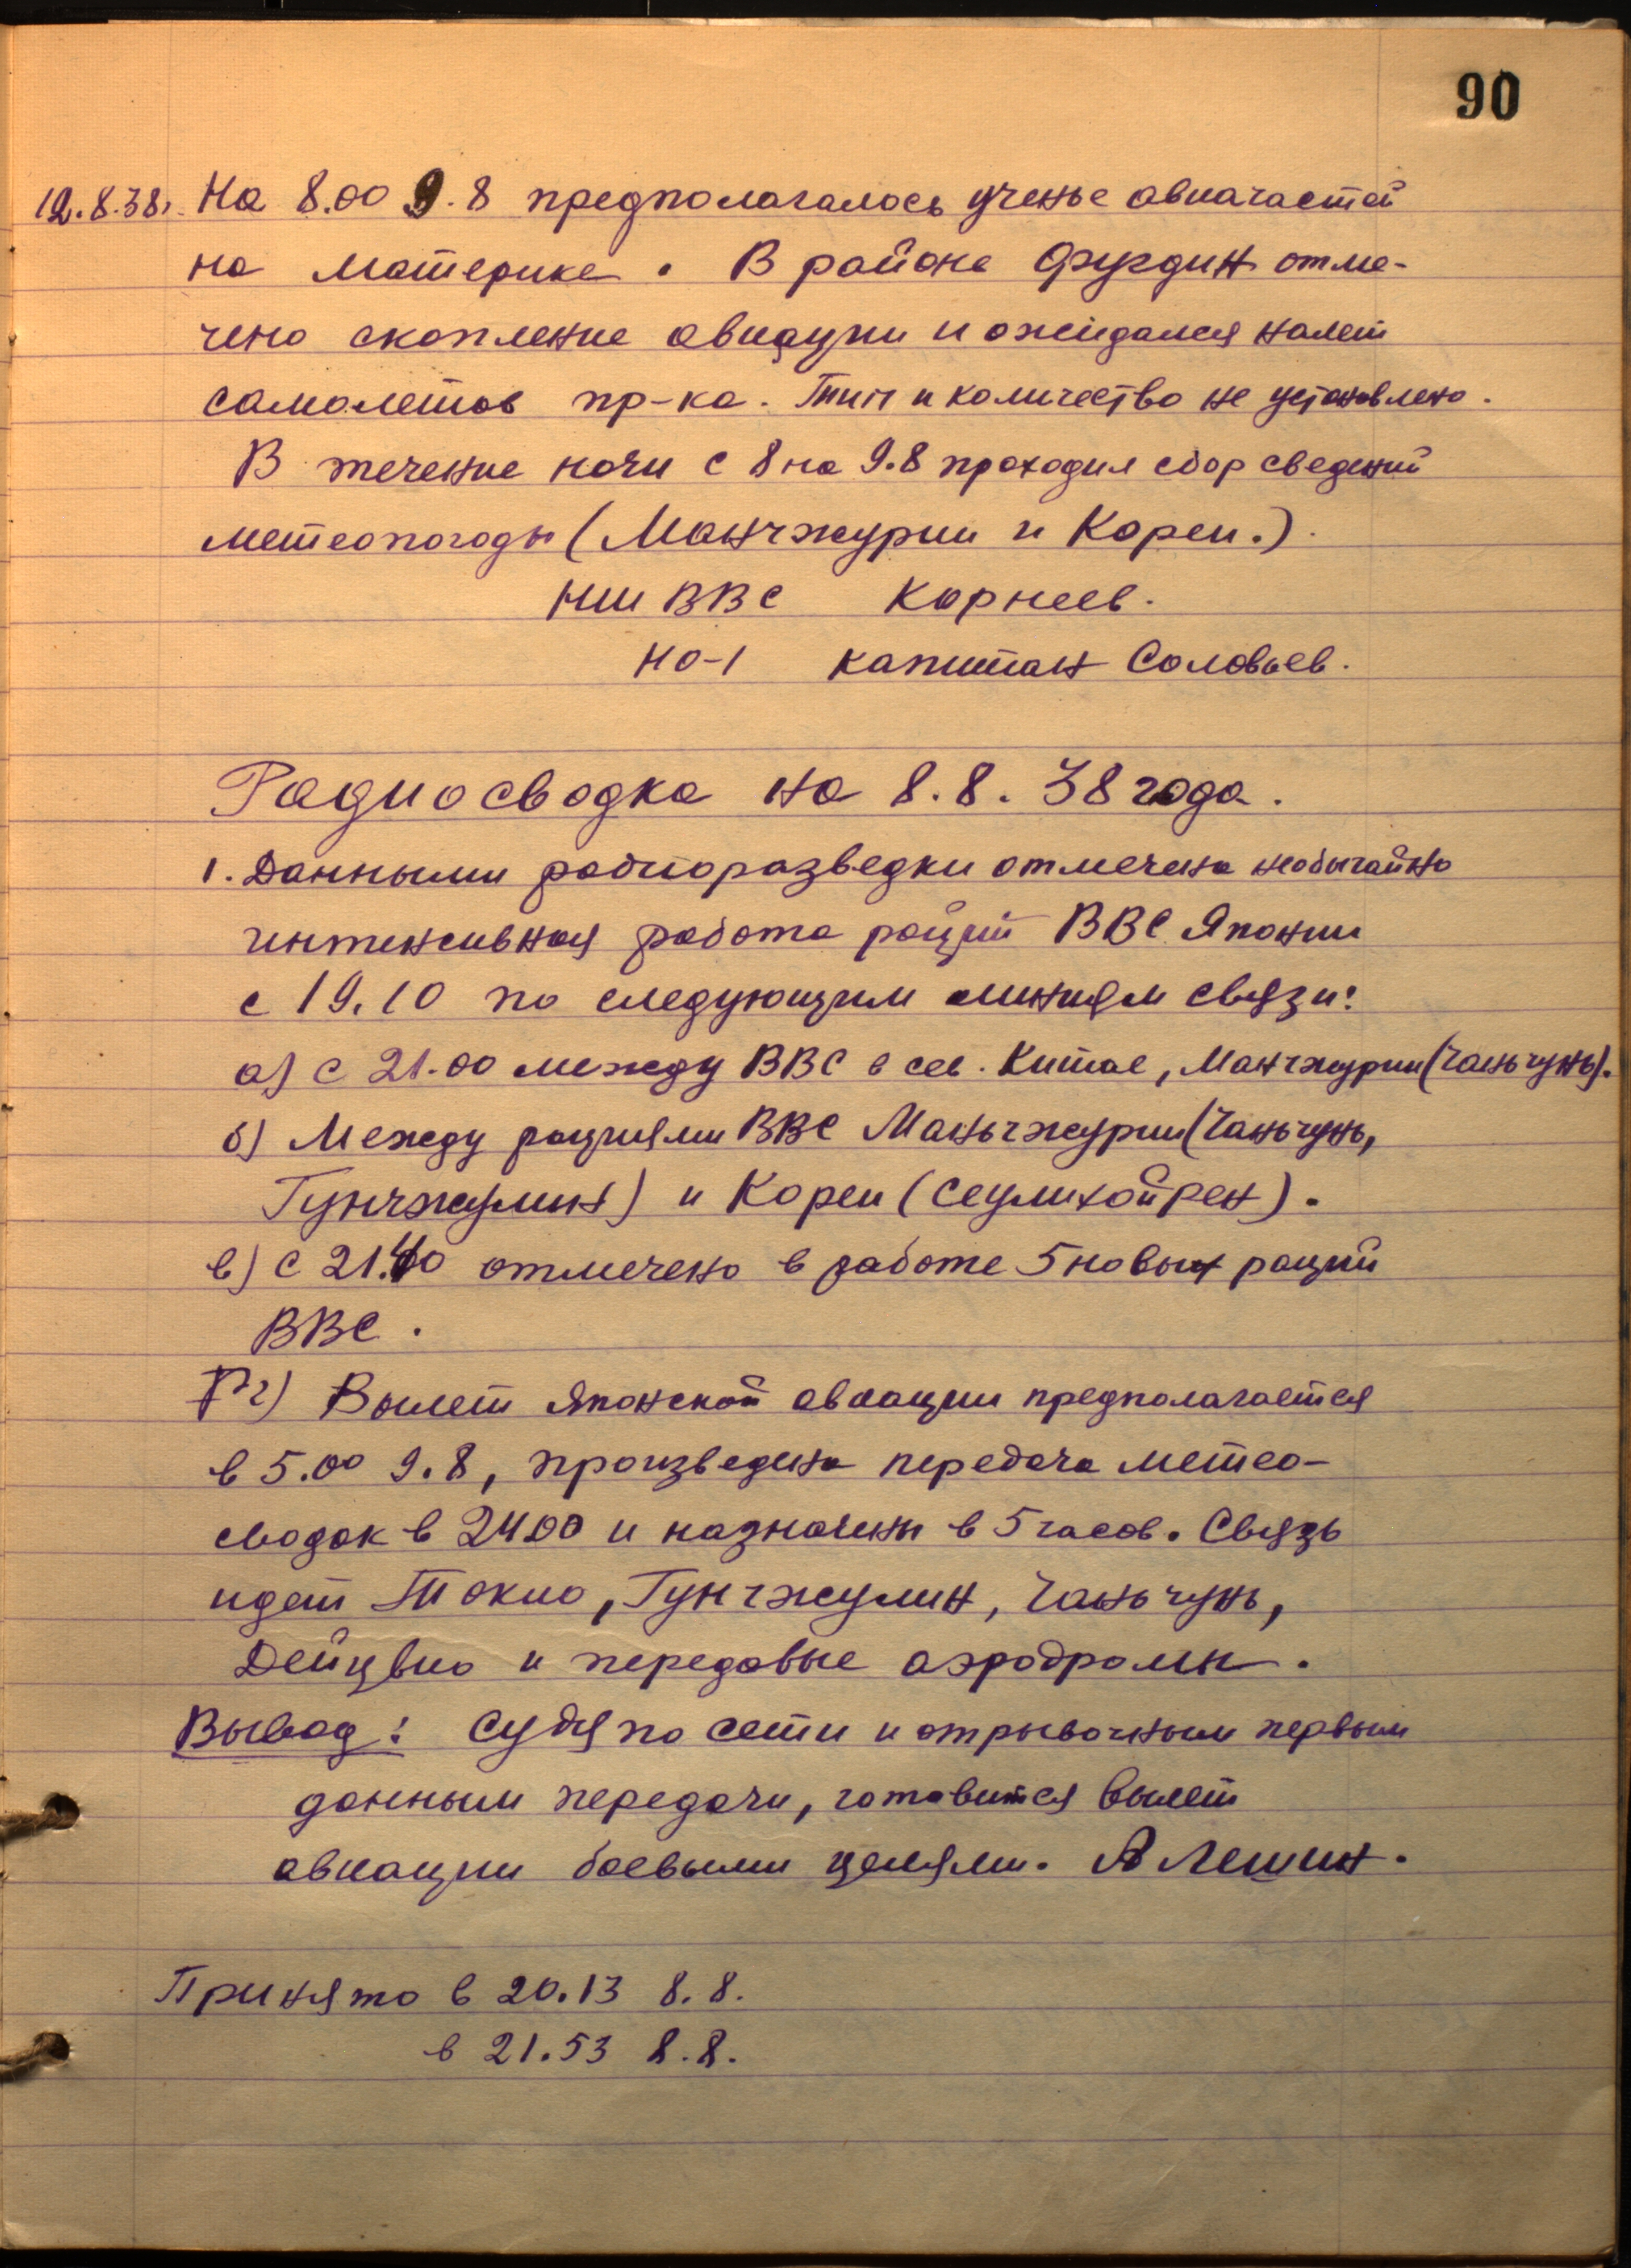 90
12.8.38г. На 8.00 9.8 предполагалось ученье авиачастей
на материке. В районе Фугдин отме-
чено скопление авиации и ожидался налет
самолетов пр-ка. Тип и количество не установлено.
В течение ночи с 8 на 9.8 проходил сбор сведений
метеопогоды (Манчжурии и Кореи.).
НШ ВВС Корнеев.
НО-1 капитан Соловьев.
Радиосводка на 8.8.38 года.
1. Данными радиоразведки отмечена необычайно
интенсивная работа раций ВВС Японии
с 19.10 по следующим линиям связи:
а) с 21.00 между ВВС в сев. Китае, Манчжурии (Чаньчунь).
б) Между рациями ВВС Маньчжурии (Чаньчунь,
Гунчжулин) и Кореи (Сеулихойрен).
в) с 21.40 отмечено в работе 5 новых раций
ВВС.
г) Вылет Японской авиации предполагается
в 5.00 9.8, произведена передача метео-
сводок в 24.00 и назначены в 5 часов. Связь
идет Токио, Гунчжулин, Чаньчунь,
Дейцвио и передовые аэродромы.
Вывод: Судя по сети и отрывочным первым
данным передачи, готовится вылет
авиации боевыми целями. Алешин.
Принято в 20.13 8.8.
в 21.53 8.8.